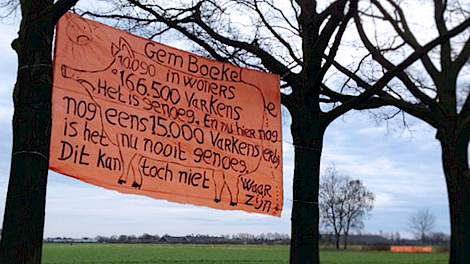 Gem Boekel
10.090 inwoners
166.500 Varkens
Het is genoeg. En nu hier nog
nog eens 15.000 Varkens erby
is het nu nooit genoeg.
Dit kan toch niet waar
zijn